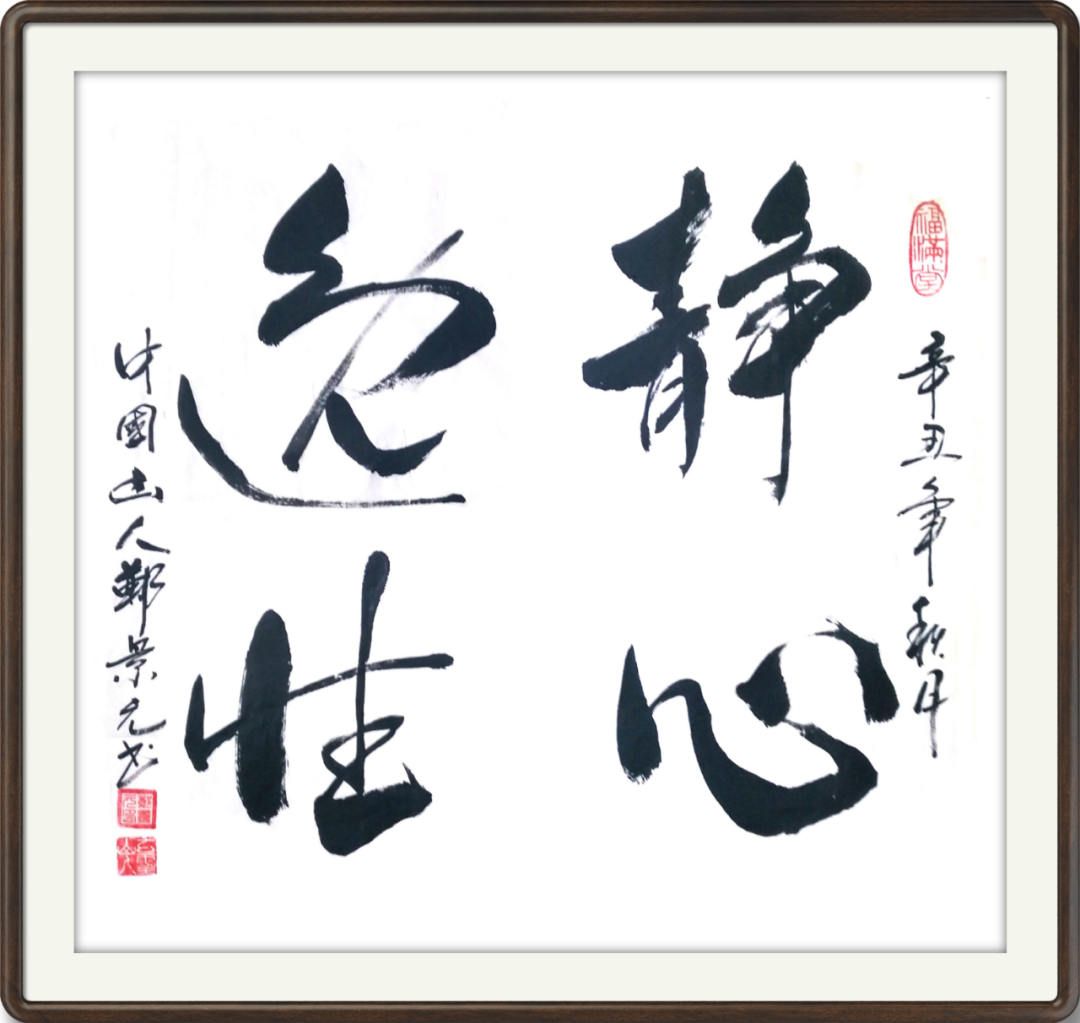 福滿堂
辛丑年秋月
静心
逸性
中國人鄭景元书